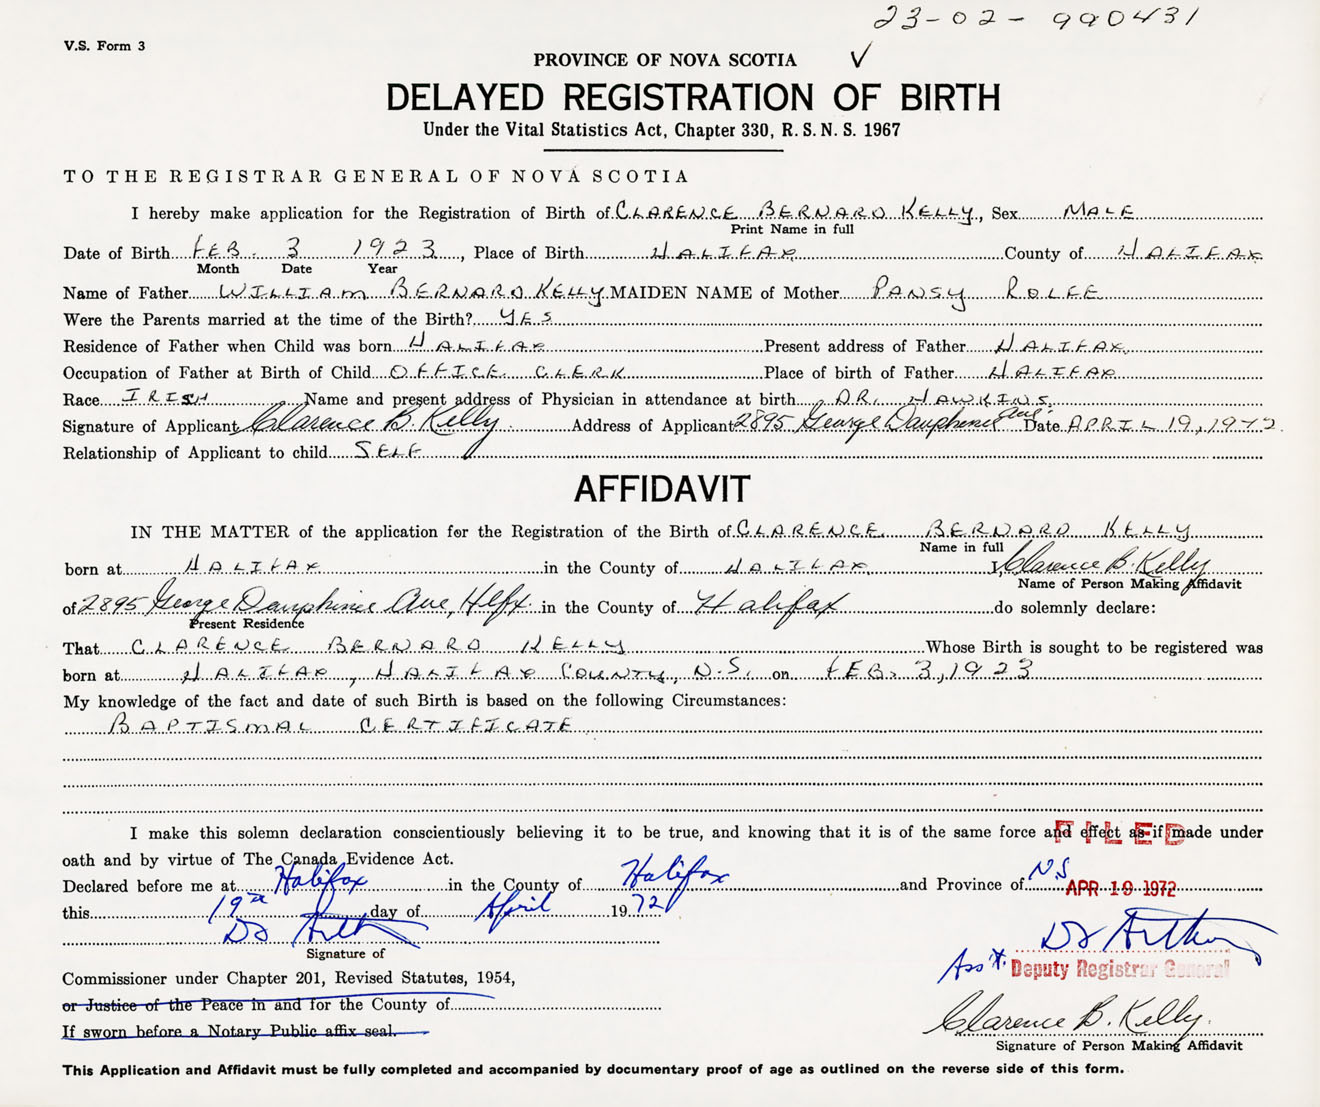 23-02-990431
V.S. Form 3
PROVINCE OF NOVA SCOTIA ✓
DELAYED REGISTRATION OF BIRTH
Under the Vital Statistics Act, Chapter 330, R.S.N.S. 1967
TO THE REGISTRAR GENERAL OF NOVA SCOTIA
I hereby make application for the Registration of Birth of CLARENCE BERNARD KELLY, Sex MALE
Print Name in full
Date of Birth FEB. 3 1923, Place of Birth HALIFAX County of HALIFAX
Month Date Year
Name of Father WILLIAM BERNARD KELLY MAIDEN NAME of Mother PANSY ROLFE
Were the Parents married at the time of the Birth? YES
Residence of Father when Child was born HALIFAX Present address of Father HALIFAX
Occupation of Father at Birth of Child OFFICE CLERK Place of birth of Father HALIFAX
Race IRISH Name and present address of Physician in attendance at birth DR. HAWKINS
Signature of Applicant Clarence B. Kelly Address of Applicant 2895 George Dauphinee Ave. Date APRIL 19, 1972
Relationship of Applicant to child SELF
AFFIDAVIT
IN THE MATTER of the application for the Registration of the Birth of CLARENCE BERNARD KELLY
Name in full
born at HALIFAX in the County of HALIFAX I, Clarence B. Kelly
Name of Person Making Affidavit
of 2895 George Dauphinee Ave, Hlfx. in the County of Halifax do solemnly declare:
Present Residence
That CLARENCE BERNARD KELLY Whose Birth is sought to be registered was
born at HALIFAX, HALIFAX COUNTY, N.S. on FEB. 3, 1923
My knowledge of the fact and date of such Birth is based on the following Circumstances:
BAPTISMAL CERTIFICATE
I make this solemn declaration conscientiously believing it to be true, and knowing that it is of the same force and effect as if made under
FILED
oath and by virtue of The Canada Evidence Act.
Declared before me at Halifax in the County of Halifax and Province of N.S
APR 19 1972
this 19th day of April 1972
Signature of
Ass't. Deputy Registrar General
Commissioner under Chapter 201, Revised Statutes, 1954,
or Justice of the Peace in and for the County of
Clarence B. Kelly
If sworn before a Notary Public affix seal.
Signature of Person Making Affidavit
This Application and Affidavit must be fully completed and accompanied by documentary proof of age as outlined on the reverse side of this form.